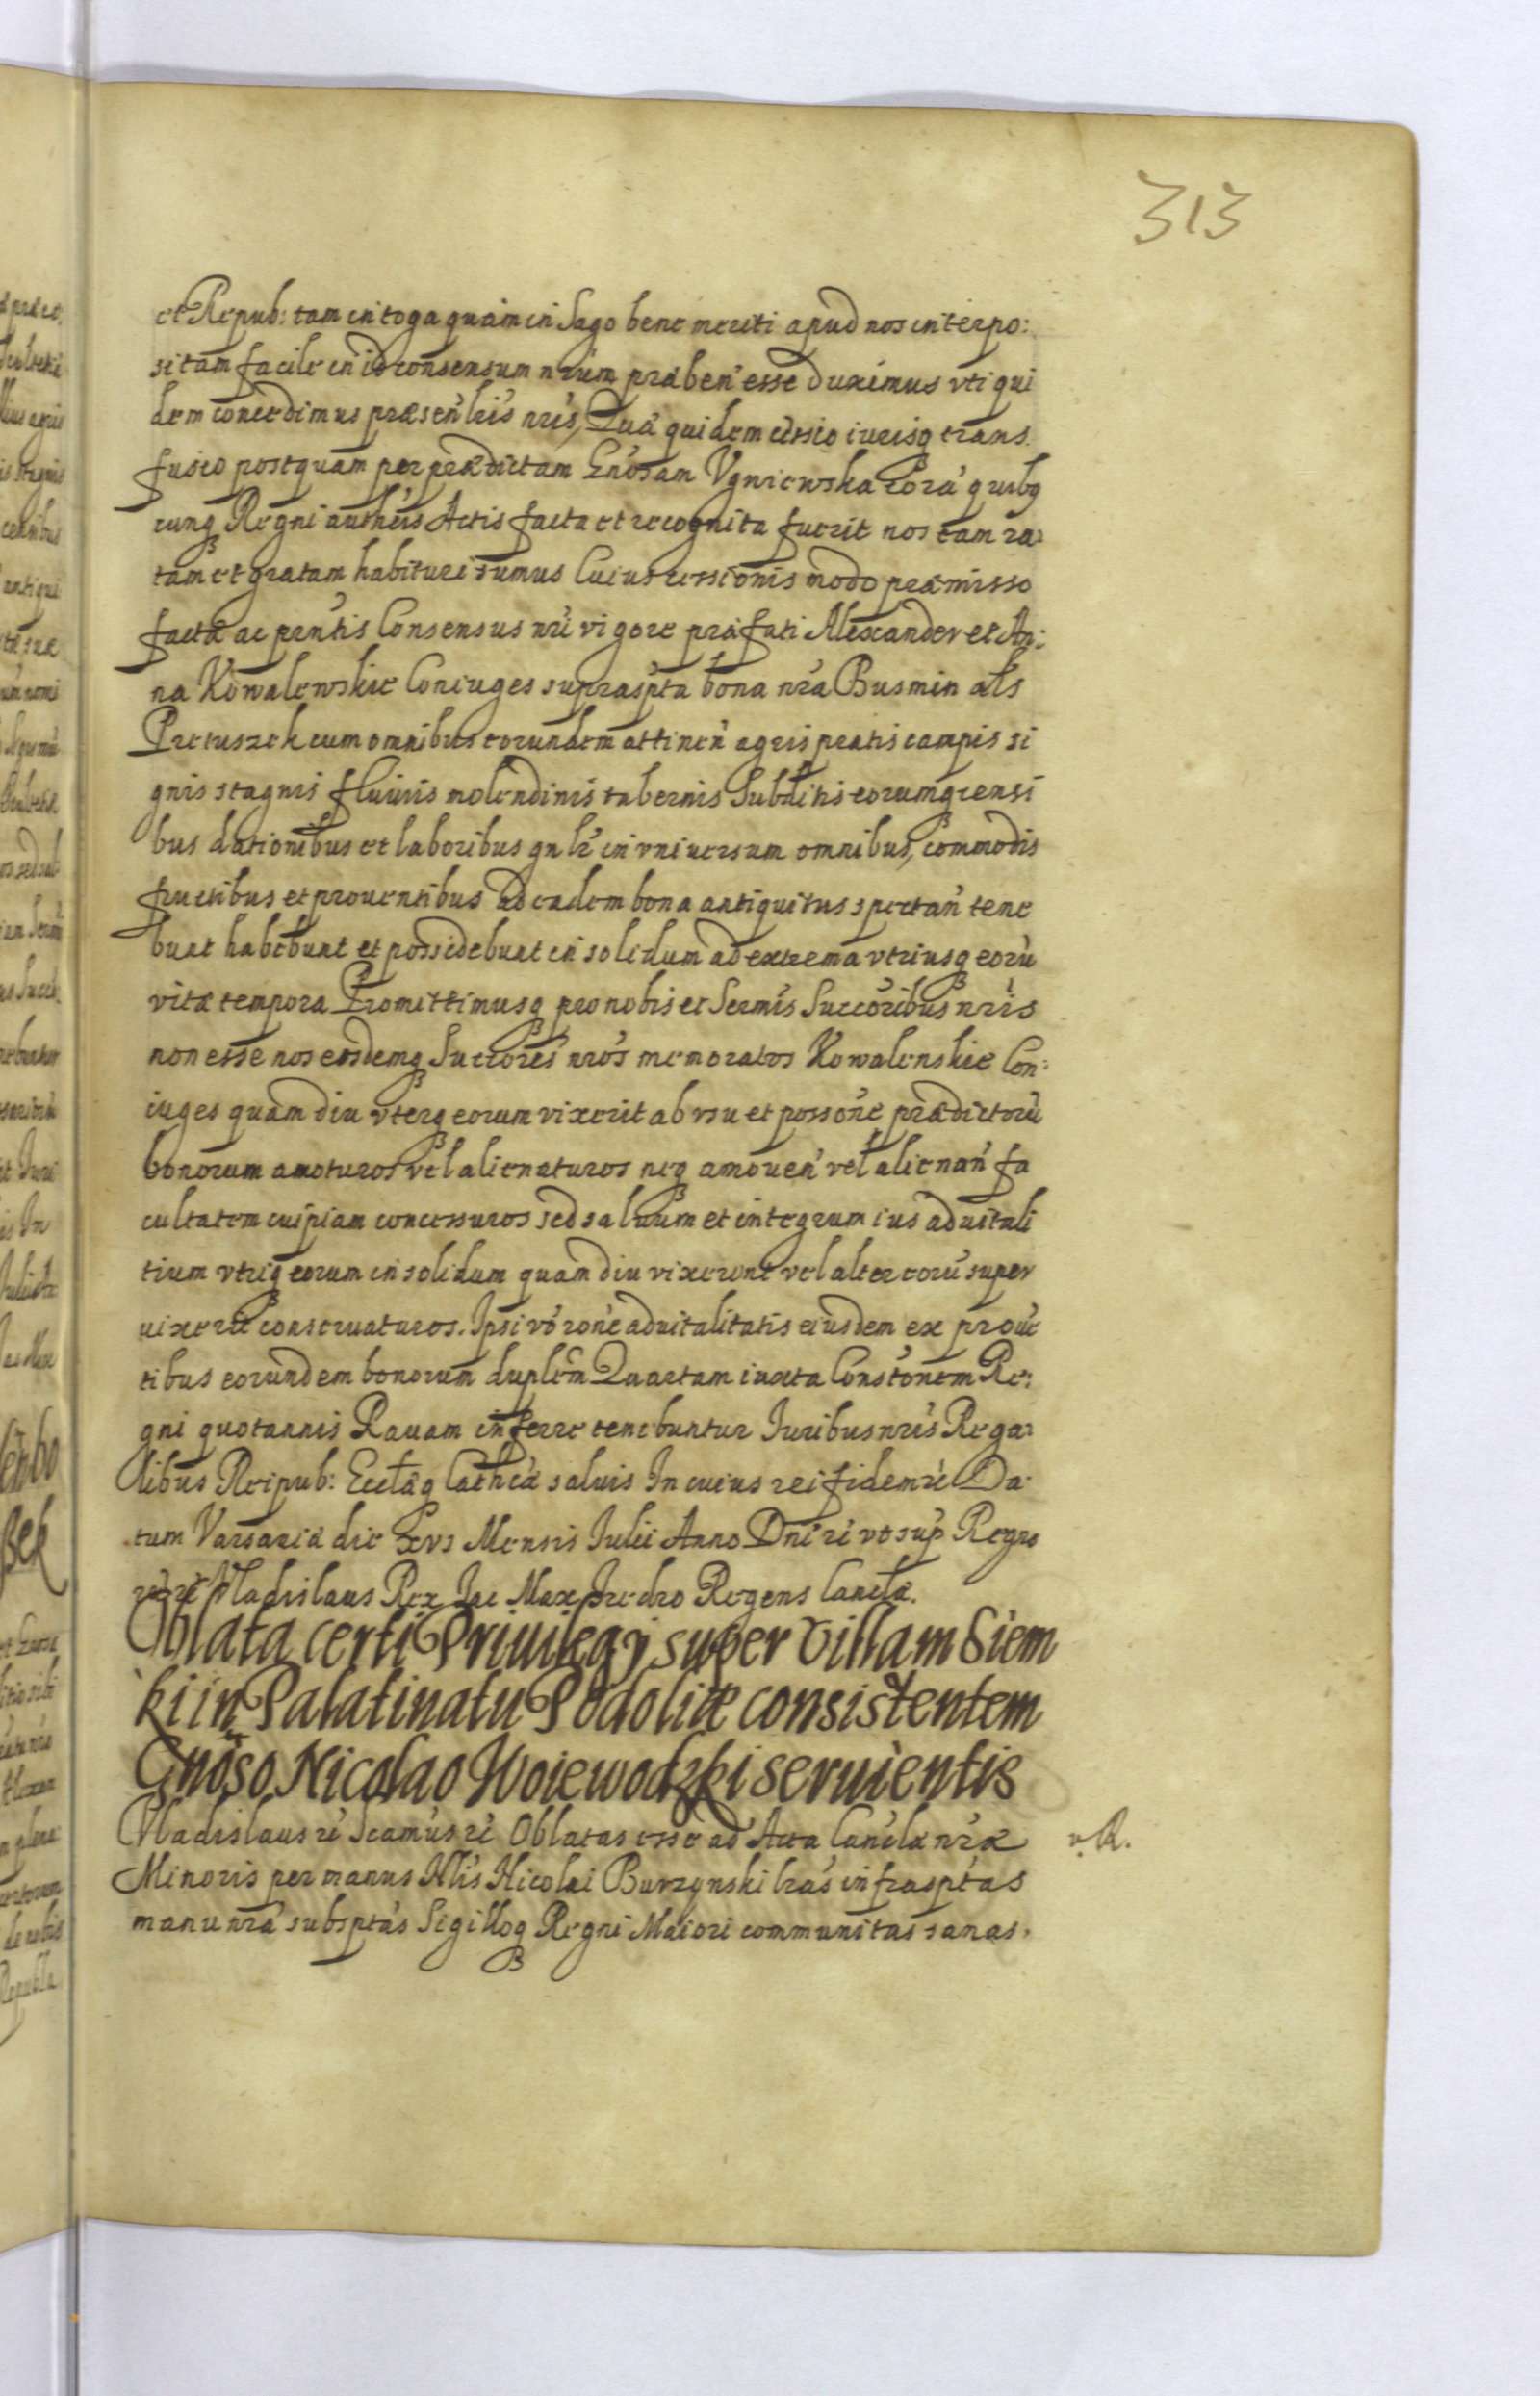 313
et Repub: tam in toga quàm in Sago bene meriti apud nos interpo:
sitam facile in id consensum nrũm præben̄ esse duximus vti qui
dem concedimus præsen̄ lr̄is nr̄is, Quæ quidem cessio iurisq₃ trans
fusio postquam per prædictam Gn̄osam Vgniewska corā quibq₃
cunq₃ Regni authēis Actis facta et recognita fuerit nos eam ra:
tam et gratam habituri sumus Cuius cessionis modo præmisso
factæ ac pn̄tis Consensus nr̄i vigore præfati Alexander et An:
na Kowalewskie Coniuges suprasp̄ta bona nr̄a Busmin al̄s
Pretuszek cum omnibus eorundem attinen̄ agris pratis campis si
gnis stagnis fluuiis molendinis tabernis Subditis eorumq₃ censi
bus dationibus et laboribus gn̄lr̄ in vniuersum omnibus, commodis
fructibus et prouentibus ad eadem bona antiquitus spectan̄ tene
bunt habebunt et possidebunt in solidum ad extrema vtriusq₃ eorū
vitæ tempora Promittimusq₃ pro nobis et Serm̄is Succōribus nr̄is
non esse nos eosdemq₃ Succōres nr̄os memoratos Kowalenskie Con:
iuges quamdiu vterq₃ eorum vixerit ab vsu et possōne prædictorū
bonorum amoturos vel alienaturos neq₃ amouen̄ vel alienan̄ fa
cultatem cuipiam concessuros sed saluum et integrum ius aduitali
tium vtriq₃ eorum in solidum quamdiu vixerint vel alter eorū super
uixerit conseruaturos. Ipsi vō rōne aduitalitatis eiusdem ex prouē
tibus eorundem bonorum duplēm Quartam iuxta Constōnem Re:
gni quotannis Rauam inferre tenebuntur Iuribus nr̄is Rega:
libus Reipub: Eccl̄æq₃ Cathcæ saluis In cuius rei fidem rē Da:
tum Varsaviæ die xvi Mensis Iulii Anno Dn̄i rē vt sup̄ Regno
rē rē Vladislaus Rex Iac Max Fredro Regens Canclæ.
Oblata certi Priuilegij super Villam Siem
ki in Palatinatu Podoliæ consistentem
Gnōso Nicolao Woiewodzki seruientis
Vladislaus rē Scamūs rē Oblatas esse ad Acta Canclæ nr̄æ
Minoris per manus Nl̄is Nicolai Burzynski lr̄as infrasp̄tas
manu nr̄a subsp̄tas Sigilloq₃ Regni Maiori communitas sanas,